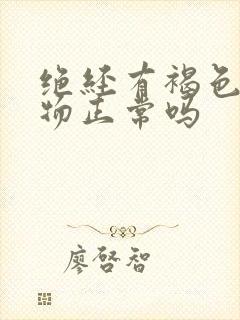 绝经有褐色
物正常吗
廖启智